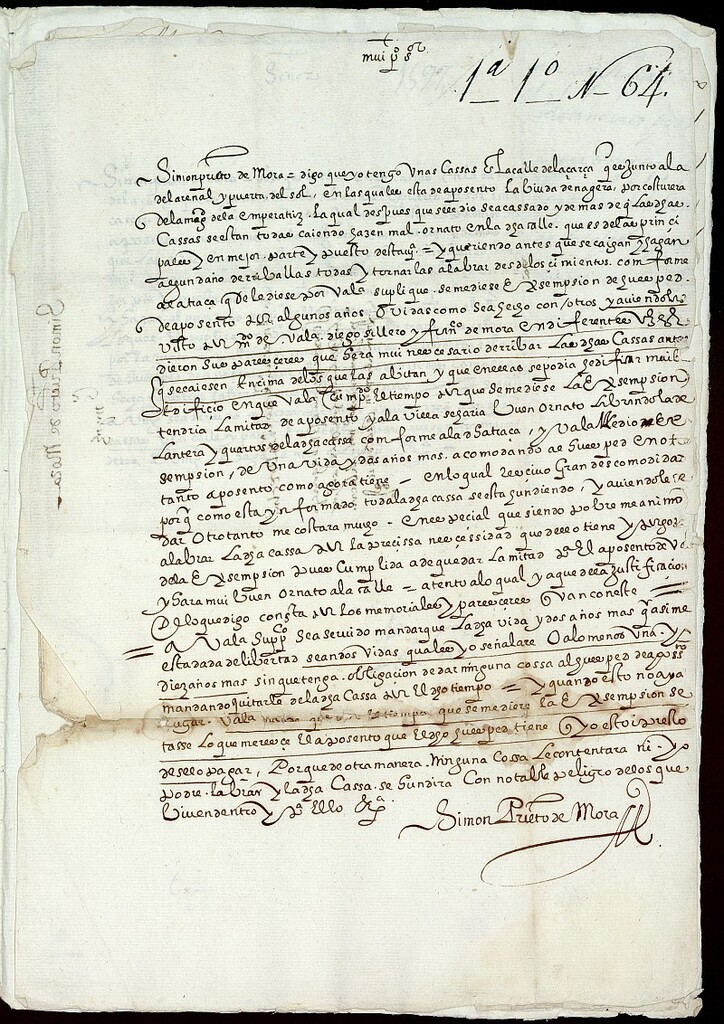 mui p.º s.or
1ª 1º N 64.
Simon prieto de Mora = digo que yo tengo Unas Cassas E la calle de la çarça que es Junto a la
del arenal y puerta del sol, en las quales esta de aposento La biuda de nagera, por costurera
de la mag.d de la emperatriz. la qual despues que se le dio se a cassado y de mas de q las dhas
Cassas se estan todas caiendo hazen mal ornato en la dha calle. que es de las prinçi
pales y en mejor parte y puesto desta v.ª = y queriendo antes que se caigan y hagan
algun daño derriballas todas y tornarlas a labrar desde los çimientos. comforme
a la traça q de le diese por Vala suplique se me diese Exsempsion de huesped
de aposento por algunos años O vidas como sea hecho con otros y aviendolo
Visto por m.do de Vala. diego sillero y fran.co de mora en diferentes
dieron sus pareçeres que hera mui neçesario derribar Las dhas Cassas antes
q se caiesen Ençima de los que las abitan y que en ellas se podia hedificar mui b
Edifiçio en que Vala Cumpdo el tiempo por que se me diese La Exsempsion
tendria La mitad de aposento y a la Villa se haria buen Ornato Labrando la de
lantera y quartos de la dha cassa comforme a la dha traça, y Vala me dio Ex
sempsion, de Una Vida y dos años mas. acomodando al huesped en o t
tanto aposento como agora tiene en lo qual reçivo Gran descomodidad
porq como esta ynformado toda la dha cassa se esta hundiendo, y aviendole de
dar Otro tanto me costara mucho. En espeçial que siendo pobre me animo
a labrar La dha cassa por La preçissa neçessidad que dello tiene y porgoz
de la Exsempsion pues Cumplida a de quedar La mitad p.ª El aposento de V
y hara mui buen Ornato a la calle = atento a lo qual y a que de la justificaçion
De lo que digo consta por los memoriales y pareçeres q van con este
A Vala Supp.co Sea servido mandar que La dha vida y dos años mas q asi me
esta dada de libertad sean dos Vidas quales yo señalare O a lo menos Una y
diez años mas sin que tenga obligaçion de dar ninguna cossa al huesped de apossto
mandando quitarle de la dha Cassa por El dho tiempo = y quando esto no aya
lugar. Vala mande que el tiempo que se me diere la Exsempsion se
tasse Lo que mereçe El aposento que El dho huesped tiene q yo estoi presto
deselo pagar, Porque de otra manera. Ninguna Cossa Le contentara ni yo
podre labrar y la dha Cassa. se hundira Con notable peligro de los que
biven dentro y p.ª Ello &ª
Simon Prieto de Mora
Simon Prieto de Mora